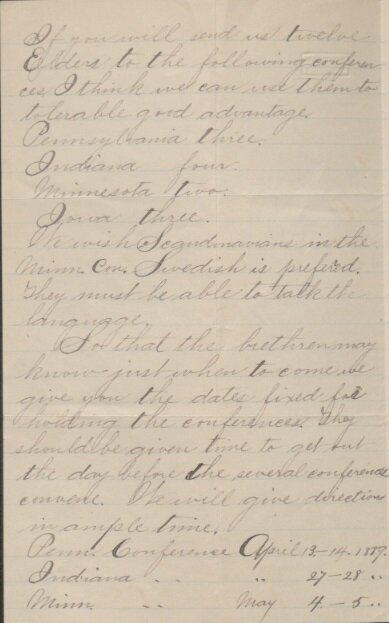 If you will send us twelve
Elders to the following conferen
ces I think we can use them to
tolerable good advantage.
Pennsylvania three.
Indiana four.
Minnesota two.
Iowa three.
We wish Scandinavians in the
Minn. Con. Swedish is prefered.
They must be able to talk the
language.
So that the brethren may
know just when to come we
give you the dates fixed for
holding the conferences. They
should be given time to get out
the day before the several conference
convene. We will give direction
in ample time.
Penn. Conference April 13-14. 1889.
Indiana " " " 27-28 "
Minn. " " May 4-5 "